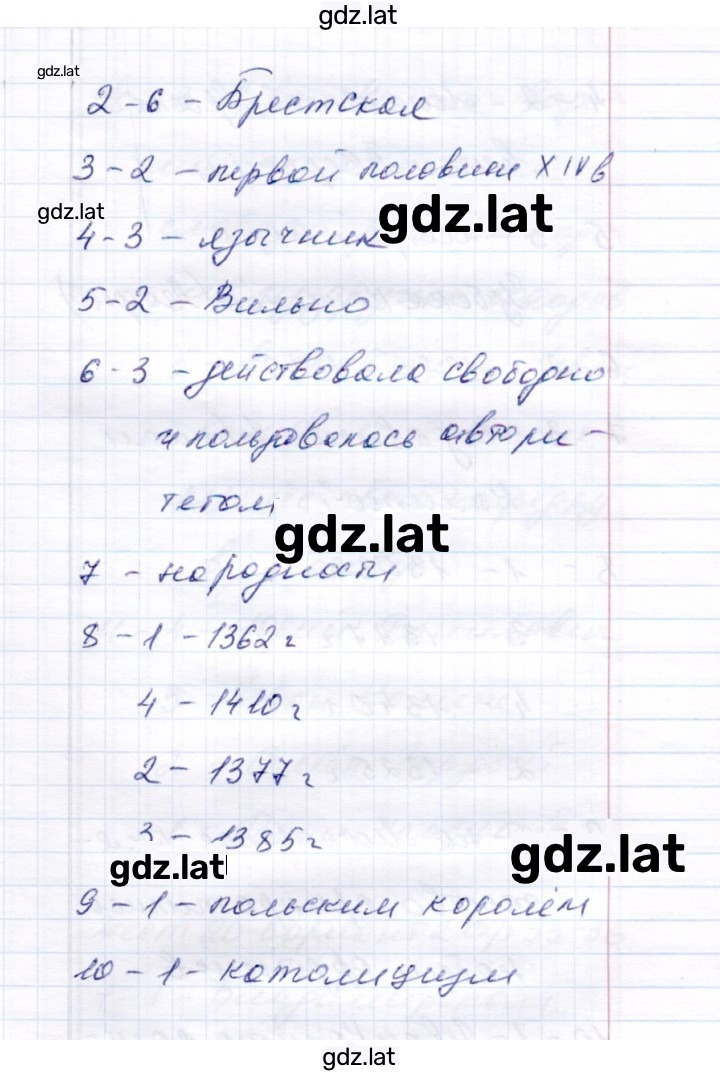 gdz.lat
gdz.lat
2-6 - Брестская
3-2 - первой половине XIV в
gdz.lat
gdz.lat
4-3 - язычник
5-2 - Вильно
6-3 - действовала свободно
и пользовалась автори-
тетом
gdz.lat
7 - народности
8 - 1 - 1362 г
4 - 1410 г
2 - 1377 г
3 - 1385 г
gdz.lat
gdz.lat
9 - 1 - польским королём
10 - 1 - католицизм
gdz.lat